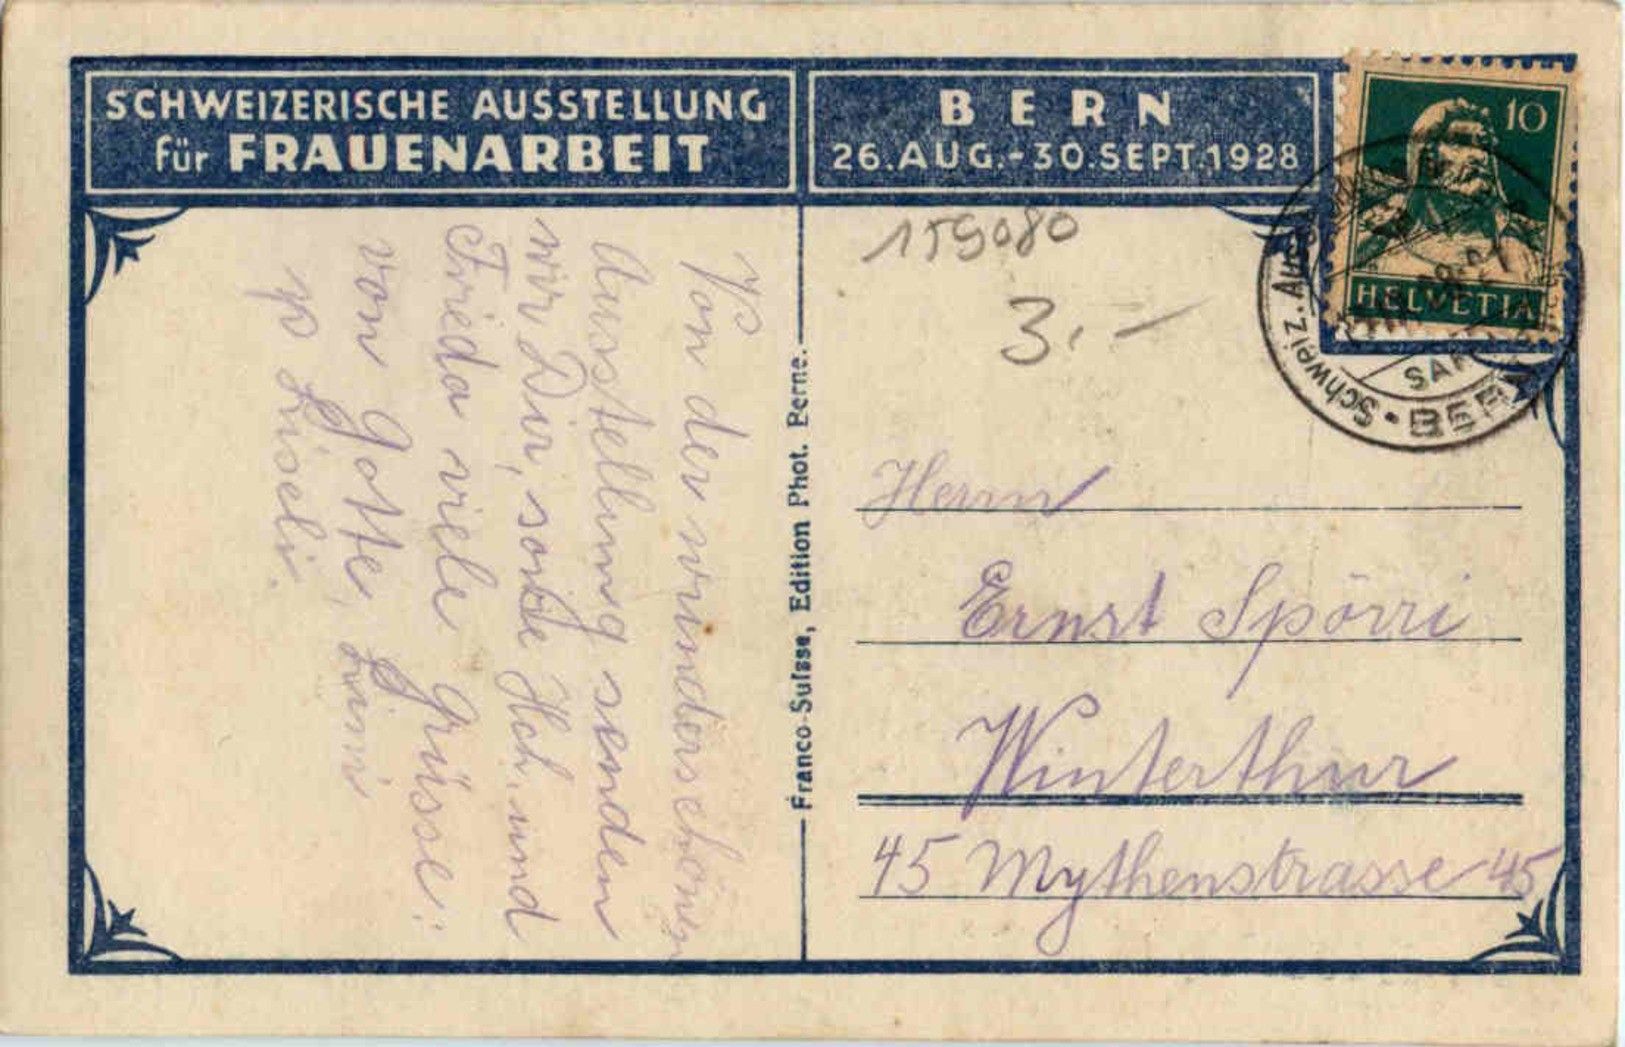 SCHWEIZERISCHE AUSSTELLUNG
für FRAUENARBEIT
BERN
26.AUG.-30.SEPT.1928
10
HELVETIA
Schweiz.
BERN
159080
3.-
Von der wunderschönen
Ausstellung senden
wir Dir, sowie Hch. und
Frieda viele Grüsse:
von Gotte,
Liseli.
Franco-Suisse, Edition Phot. Berne.
Herrn
Ernst Spörri
Winterthur
45 Mythenstrasse 45